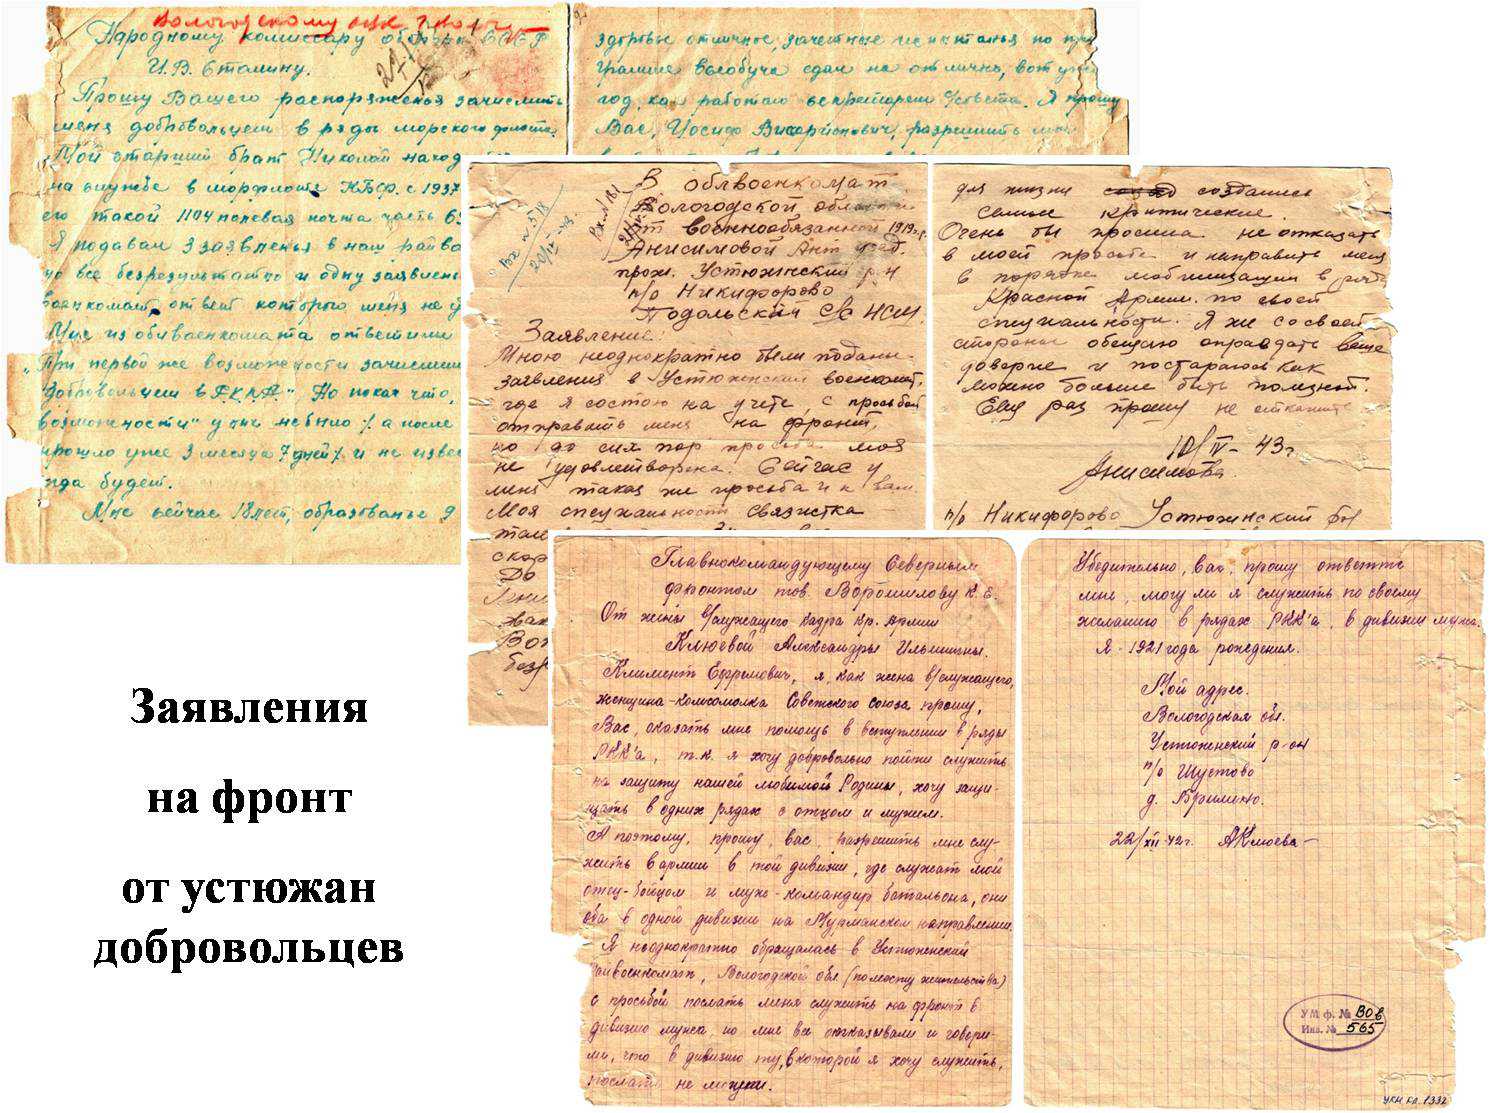 Вологодскому
Народному комиссару обороны СССР
И.В. Сталину.
Прошу Вашего распоряжения зачислить
меня добровольцем в ряды морского флота.
Мой старший брат Николай наход
на службе в морфлоте КБФ. с 1937
его такой 1104 полевая почта часть
Я подавал 3 заявленья в наш райво
но все безрезультатно и одну заявлень
военкомат, ответ которого меня не
Мне из облвоенкомата ответили
"При первой же возможности зачислим
добровольцем в РККА" Но пока что,
возможности" у них не было /. а после
прошло уже 3 месяца 7 дней /. и не извес
гда будет.
Мне сейчас 18 лет, образованье 9
здоровье отличное, зачетные испытанья по про
грамме всеобуча сдал на отлично, вот уже
год, как работаю секретарем с/совета. Я прошу
Вас, Иосиф Виссарионович, разрешить
Вх № 518
20/IV-43.
Вх № 181
В облвоенкомат
Вологодской области
от военнообязанной 1919 г.
Анисимовой Ант
прож. Устюженский р-н
п/о Никифорово
Подольский с/с НСШ.
Заявление.
Мною неоднократно были поданы
заявления в Устюженский военкомат,
где я состою на учете, с просьбой
отправить меня на фронт,
но до сих пор просьба моя
не удовлетворена. Сейчас у
меня такая же просьба и к вам.
Моя специальность связистка
скор
До
Во
безр
для жизни создались
самые критические.
Очень бы просила не отказать
в моей просьбе и направить меня
в порядке мобилизации в ряды
Красной Армии по своей
специальности. Я же со своей
стороны обещаю оправдать Ваше
доверие и постараюсь как
можно больше быть полезной.
Еще раз прошу не откажите
10/IV-43 г
Анисимова.
п/о Никифорово Устюженский
Главнокомандующему Северным
фронтом тов. Ворошилову К. Е.
От жены в/служащего кадра Кр. Армии
Клюевой Александры Ильиничны.
Климент Ефремович, я, как жена в/служащего,
женщина-комсомолка Советского союза прошу,
Вас, оказать мне помощь в вступлении в ряды
РКК'а, т.к. я хочу добровольно пойти служить
на защиту нашей любимой Родины, хочу защи-
щать в одних рядах с отцом и мужем.
А поэтому, прошу, вас, разрешить мне слу-
жить в армии в той дивизии, где служат мой
отец-бойцом и муж-командир батальона, они
оба в одной дивизии на Мурманском направлении.
Я неоднократно обращалась в Устюженский
райвоенкомат, Вологодской обл. (по месту жительства)
с просьбой послать меня служить на фронт в
дивизию мужа, но мне все отказывали и говори-
ли, что в дивизию ту, в которой я хочу служить,
послать не можем.
Убедительно, Вас, прошу ответить
мне, могу ли я служить по своему
желанию в рядах РКК'а, в дивизии мужа.
Я - 1921 года рождения.
Мой адрес.
Вологодская обл.
Устюженский р-он
п/о Шустово
д. Брилено.
22/XII-42 г. АКлюева
УМ ф. № ВОв
Инв. № 565
УКМ кп. 1332
Заявления
на фронт
от устюжан
добровольцев